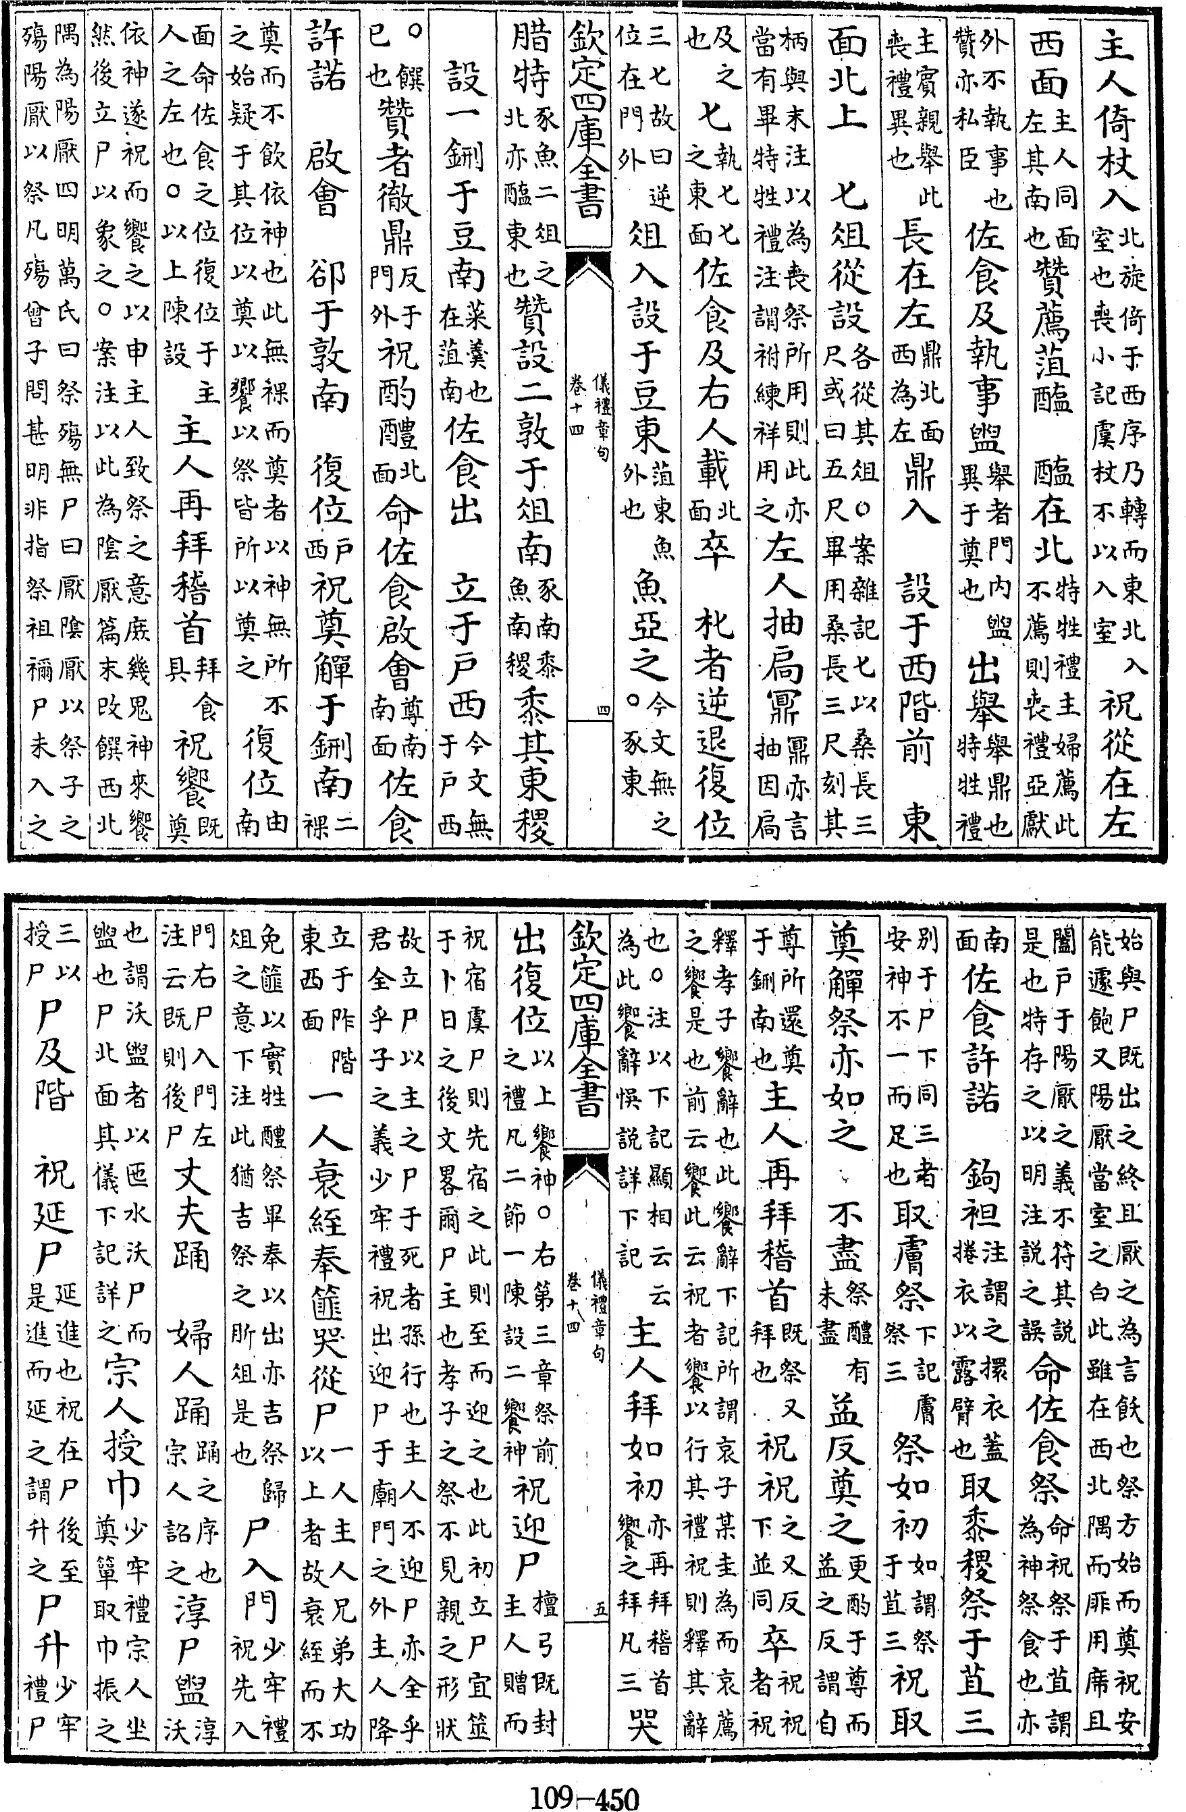 主人倚杖入北旋倚于西序乃轉而東北入室也喪小記虞杖不以入室祝從在左
西面主人同面左其南也贊薦菹醢 醢在北特牲禮主婦薦此不薦則喪禮亞獻
外不執事也贊亦私臣佐食及執事盥舉者門内盥異于奠也出舉舉鼎也特牲禮
主賓親舉此喪禮異也長在左鼎北面西為左鼎入 設于西階前 東
面北上 匕俎從設各從其俎○案雜記匕以桑長三尺或曰五尺畢用桑長三尺刻其
柄與末注以為喪祭所用則此亦當有畢特牲禮注謂祔練祥用之左人抽扃鼏鼏亦言抽因扃
及之也匕執匕匕之東面佐食及右人載北面卒 朼者逆退復位
三匕故曰逆位在門外俎入設于豆東菹東魚外也魚亞之今文無之○豕東
欽定四庫全書 儀禮章句 卷十四 四
腊特豕魚二俎之北亦醢東也贊設二敦于俎南豕南黍魚南稷黍其東稷
設一鉶于豆南菜羹也在菹南佐食出 立于戶西今文無于戶西
○饌已也贊者徹鼎反于門外祝酌醴北面命佐食啟會尊南南面佐食
許諾 啟會 郤于敦南 復位戶西祝奠觶于鉶南二祼
奠而不飲依神也此無祼而奠者以神無所不之始疑于其位以奠以饗以祭皆所以奠之復位由南
面命佐食之位復位于主人之左也○以上陳設主人再拜稽首拜食具祝饗既奠
依神遂祝而饗之以申主人致祭之意庶幾鬼神來饗然後立尸以象之○案注以此為陰厭篇末改饌西北
隅為陽厭四明萬氏曰祭殤無尸曰厭陰厭以祭子之殤陽厭以祭凡殤曾子問甚明非指祭祖禰尸未入之
始與尸既出之終且厭之為言飫也祭方始而奠祝安能遽飽又陽厭當室之白此雖在西北隅而厞用席且
闔戶于陽厭之義不符其說是也特存之以明注說之誤命佐食祭命祝祭于苴謂為神祭食也亦
南面佐食許諾 鉤袒注謂之擐衣蓋捲衣以露臂也取黍稷祭于苴三
別于尸下同三者安神不一而足也取膚祭下記膚祭三祭如初如謂祭于苴三祝取
奠觶祭亦如之 不盡祭醴有未盡益反奠之更酌于尊而益之反謂自
尊所還奠于鉶南也主人再拜稽首既祭又拜也祝祝祝之又反下並同卒祝祝者祝
釋孝子饗辭也此饗辭下記所謂哀子某圭為而哀薦之饗是也前云饗此云祝者饗以行其禮祝則釋其辭
也○注以下記顯相云云為此饗辭悞說詳下記主人拜如初亦再拜稽首饗之拜凡三哭
欽定四庫全書 儀禮章句 卷十四 五
出復位以上饗神○右第三章祭前之禮凡二節一陳設二饗神祝迎尸檀弓既封主人贈而
祝宿虞尸則先宿之此則至而迎之也此初立尸宜筮于卜日之後文畧爾尸主也孝子之祭不見親之形狀
故立尸以主之尸于死者孫行也主人不迎尸亦全乎君全乎子之義少牢禮祝出迎尸于廟門之外主人降
立于阼階東西面一人衰絰奉篚哭從尸一人主人兄弟大功以上者故衰絰而不
免篚以實牲醴祭畢奉以出亦吉祭歸俎之意下注此猶吉祭之肵俎是也尸入門少牢禮祝先入
門右尸入門左注云既則後尸丈夫踊 婦人踊踊之序也宗人詔之淳尸盥淳沃
也謂沃盥者以匜水沃尸而盥也尸北面其儀下記詳之宗人授巾少牢禮宗人坐奠簞取巾振之
三以授尸尸及階 祝延尸延進也祝在尸後至是進而延之謂升之尸升少牢禮尸
109-450